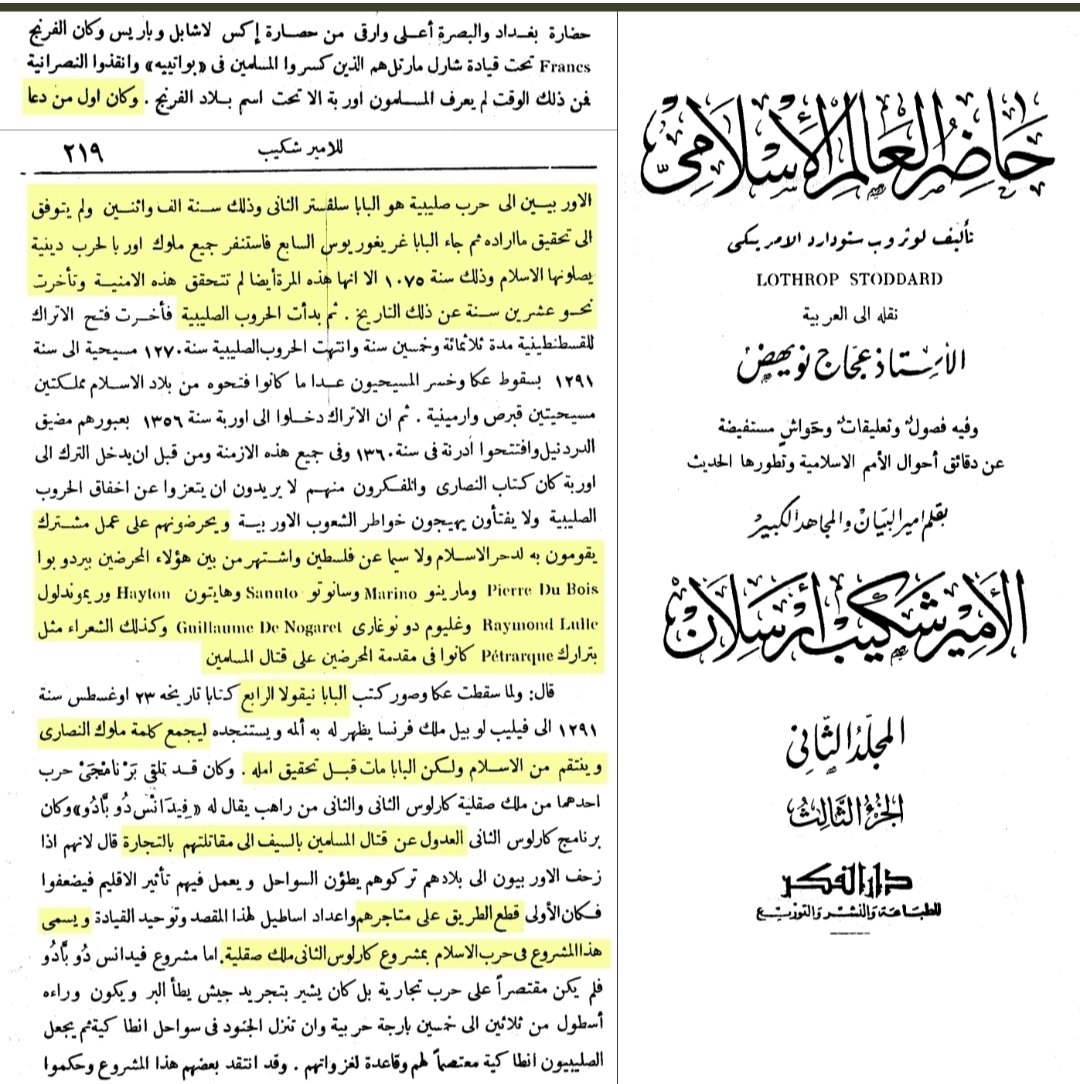 حضارة بغداد والبصرة أعلى وارقى من حصارة إكس لاشابل وباريس وكان الفرنج
Francs تحت قيادة شارل مارتل هم الذين كسروا المسلمين فى «بواتييه» وانقذوا النصرانية
فمن ذلك الوقت لم يعرف المسلمون اوربة الا تحت اسم بلاد الفرنج . وكان اول من دعا
للامير شكيب
٢١٩
الاوربيين الى حرب صليبية هو البابا سلفستر الثانى وذلك سنة الف واثنين ولم يتوفق
الى تحقيق مااراده ثم جاء البابا غريغوريوس السابع فاستنفر جميع ملوك اوربا لحرب دينية
يصلونها الاسلام وذلك سنة ١٠٧٥ الا انها هذه المرة أيضا لم تتحقق هذه الامنية وتأخرت
نحو عشرين سنة عن ذلك التاريخ . ثم بدأت الحروب الصليبية فأخرت فتح الاتراك
للقسطنطينية مدة ثلاثمائة وخمسين سنة وانتهت الحروب الصليبية سنة ١٢٧٠ مسيحية الى سنة
١٢٩١ بسقوط عكا وخسر المسيحيون عدا ما كانوا فتحوه من بلاد الاسلام مملكتين
مسيحيتين قبرص وارمينية . ثم ان الاتراك دخلوا الى اوربة سنة ١٣٥٦ بعبورهم مضيق
الدردنيل وافتتحوا أدرنة فى سنة ١٣٦٠ وفى جميع هذه الازمنة ومن قبل ان يدخل الترك الى
اوربة كان كتاب النصارى والمفكرون منهم لا يريدون ان يتعزوا عن اخفاق الحروب
الصليبية ولا يفتأون يهيجون خواطر الشعوب الاوربية ويحرضونهم على عمل مشترك
يقومون به لدحر الاسلام ولا سيما عن فلسطين واشتهر من بين هؤلاء المحرضين بيردوبوا
Pierre Du Bois ومارينو Marino وسانوتو Sanuto وهايتون Hayton وريموندلول
Raymond Lulle وغليوم دو نوغارى Guillaume De Nogaret وكذلك الشعراء مثل
بترارك Pétrarque كانوا فى مقدمة المحرضين على قتال المسلمين
قال: ولما سقطت عكا وصور كتب البابا نيقولا الرابع كتابا تاريخه ٢٣ اوغسطس سنة
١٢٩١ الى فيليب لوبيل ملك فرنسا يظهر له به ألمه ويستنجده ليجمع كلمة ملوك النصارى
وينتقم من الاسلام ولكن البابا مات قبل تحقيق امله . وكان قد تلقي بَرْنامجَىْ حرب
احدهما من ملك صقلية كارلوس الثانى والثانى من راهب يقال له «فِيدَانْس دُو بَّادُو» وكان
برنامج كارلوس الثانى العدول عن قتال المسلمين بالسيف الى مقاتلتهم بالتجارة قال لانهم اذا
زحف الاوربيون الى بلادهم تركوهم يطؤن السواحل ويعمل فيهم تأثير الاقليم فيضعفوا
فكان الأولى قطع الطريق على متاجرهم واعداد اساطيل لهذا المقصد وتوحيد القيادة ويسمى
هذا المشروع فى حرب الاسلام بمشروع كارلوس الثانى ملك صقلية. اما مشروع فيدانس دُو بَّادُو
فلم يكن مقتصراً على حرب تجارية بل كان يشير بتجريد جيش يطأ البر ويكون وراءه
أسطول من ثلاثين الى خمسين بارجة حربية وان تنزل الجنود فى سواحل انطاكية ثم يجعل
الصليبيون انطاكية معتصماً لهم وقاعدة لغزواتهم . وقد انتقد بعضهم هذا المشروع وحكموا
حَاضِرُ العَالم الإِسْلَامِىّ
تأليف لوثروب ستودارد الامريكى
LOTHROP STODDARD
نقله الى العربية
الأستاذ عجاج نويهض
وفيه فصولٌ وتعليقاتٌ وحَواشٍ مستفيضة
عن دقائق أحوال الأمم الاسلامية وتطورها الحديث
بقلم امير البيان والمجاهد الكبير
الأمير شكيب أرسلان
المجلد الثاني
الجزء الثالث
دار الفكر
للطباعة والنشر والتوزيع